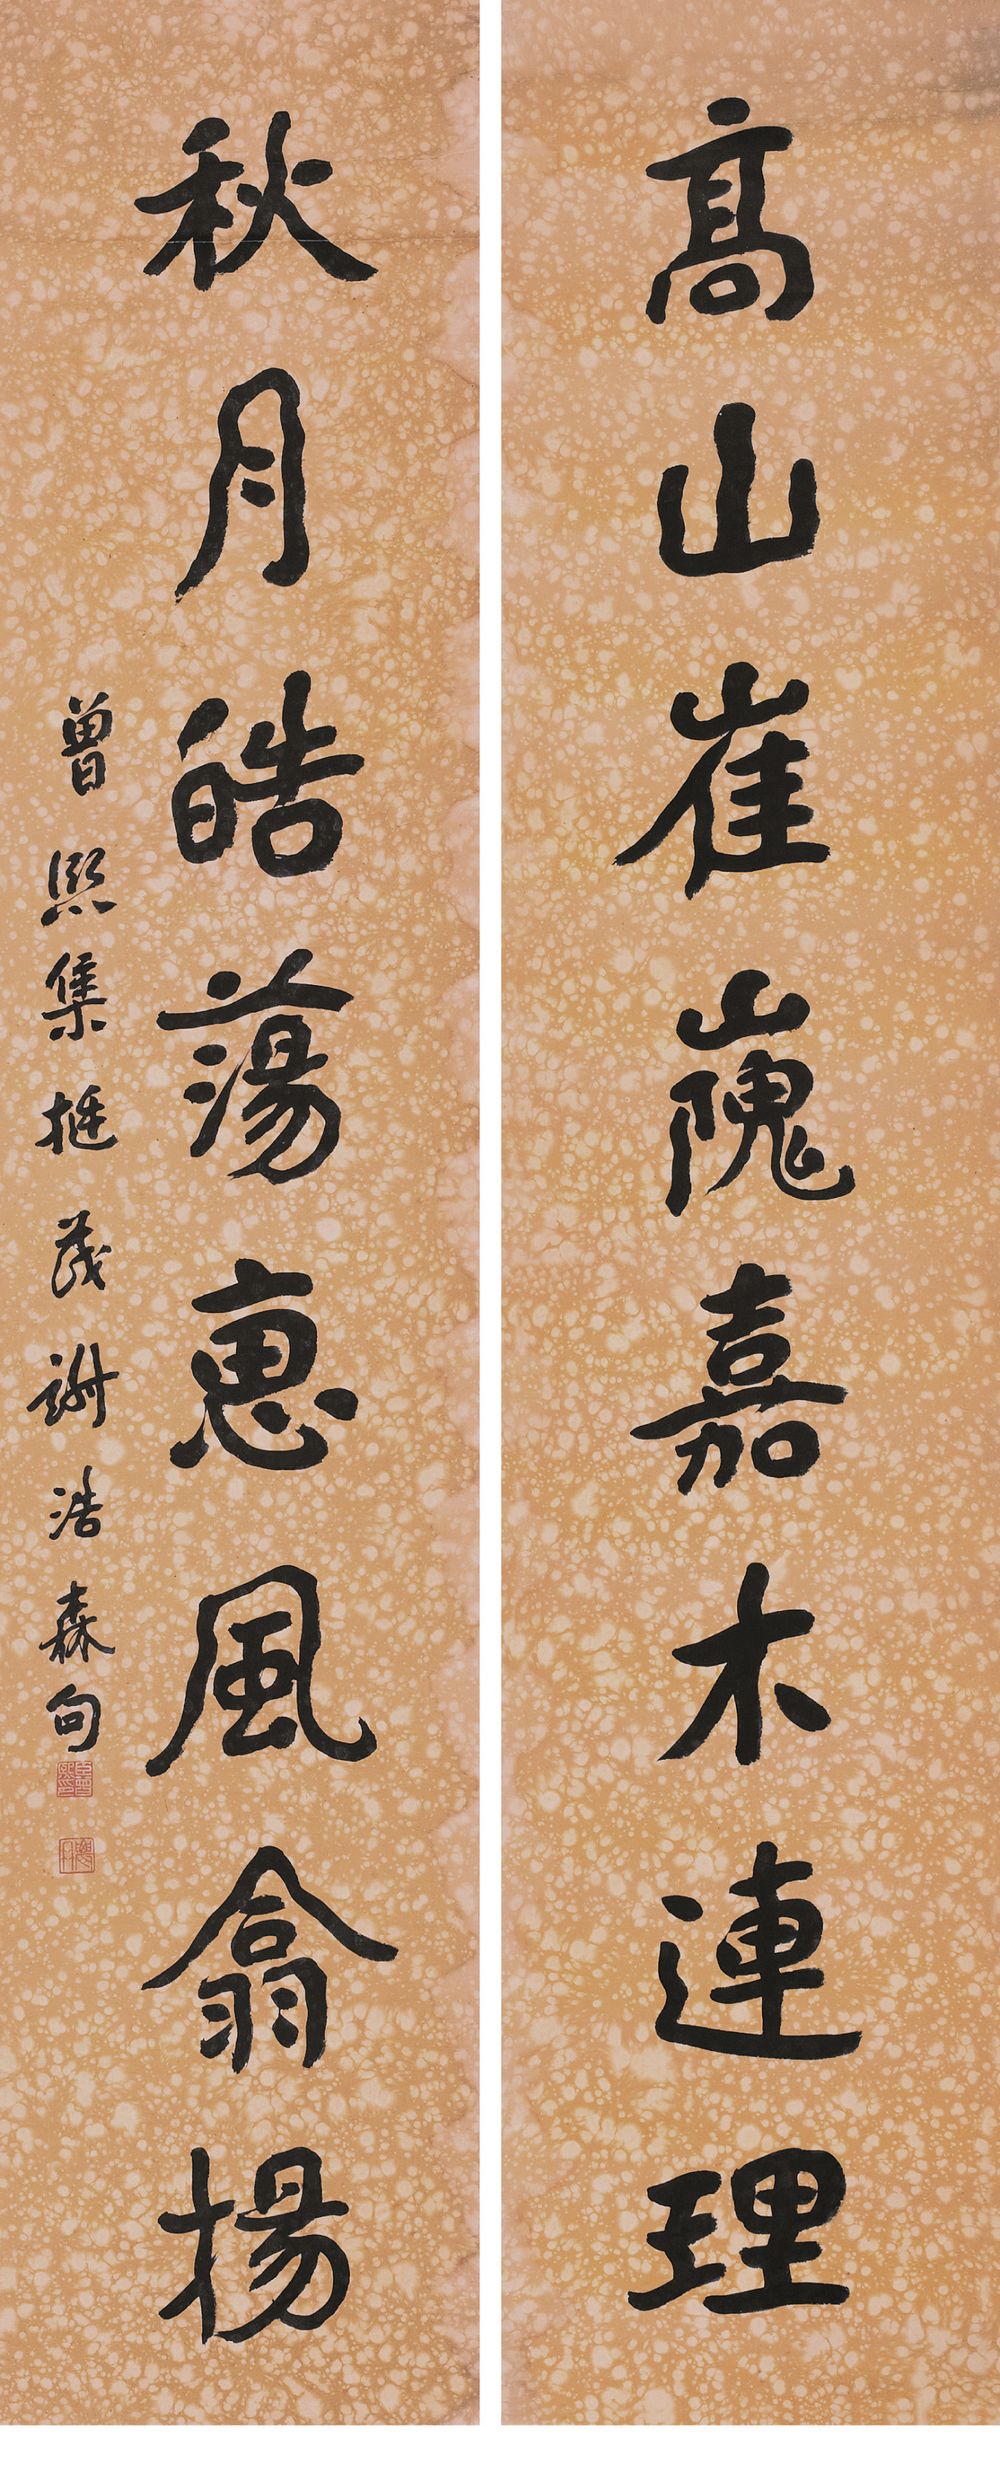 高山崔嵬嘉木連理
秋月皓蕩惠風翕揚
曾熙集
浩森句